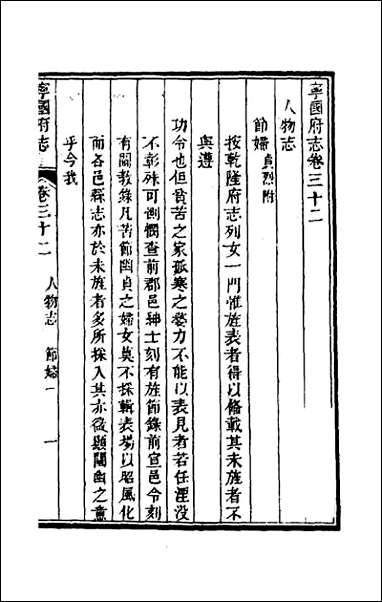 寧國府志卷三十二
人物志
節婦貞烈附
按乾隆府志列女一門惟旌表者得以備載其未旌者不
與遵
功令也但貧苦之家孤寒之嫠力不能以表見者若任湮沒
不彰殊可惻憫查前郡邑紳士刻有旌節錄前宣邑令刻
有闡教錄凡苦節幽貞之婦女莫不採輯表揚以昭風化
而各邑縣志亦於未旌者多所採入其亦微顯闡幽之意
乎今我
寧國府志
卷三十二
人物志
節婦一
一